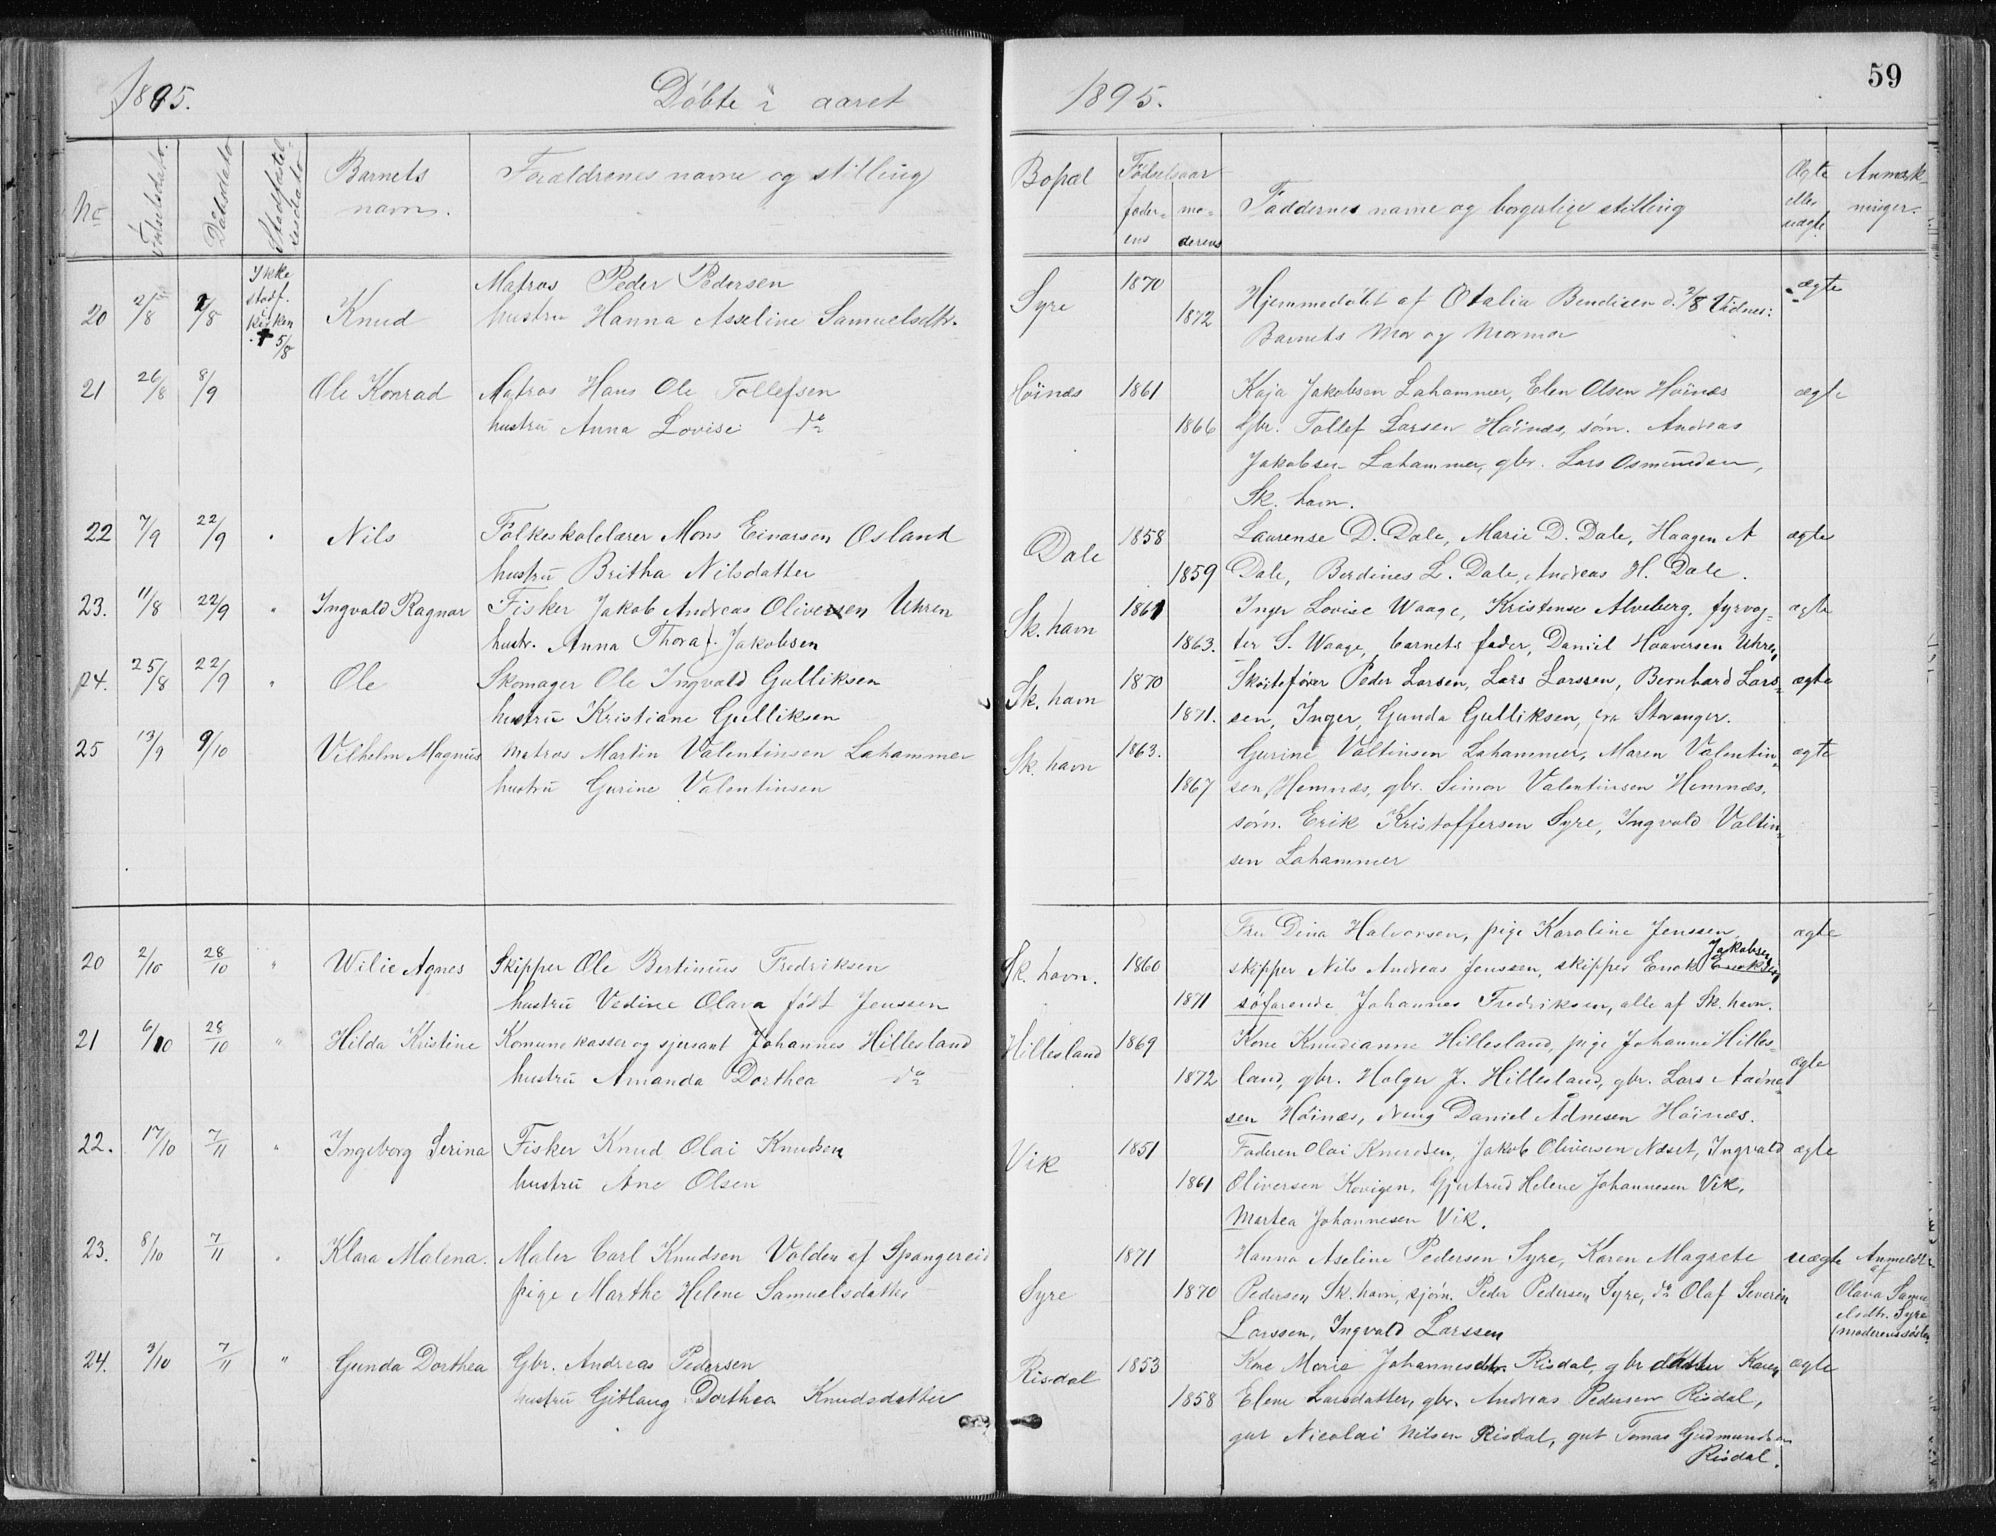 59
1895. Döbte i aaret 1895.
No Födselsdato. Daabsdato Stadfæstelsesdato Barnets navn. Forældrenes navne og stilling Bopæl Fødselsaar faderens moderens Faddernes navne og borgerlige stilling Ægte eller uægte Anmærkninger.
20 2/8 2/8 Ikke stadf. i kirken † 5/8 Knud Matros Peder Pedersen Syre 1870 Hjemmedöbt af Otalia Bendixen d. 2/8 Vidner: ægte
hustru Hanna Asseline Samuelsdtr. 1872 Barnets Mor og Mormor
21 26/8 8/9 Ole Konrad Matros Hans Ole Tollefsen Höinæs 1861 Kaja Jakobsen Lahammer, Elen Olsen Höinæs ægte
hustru Anna Lovise do 1866 Gbr. Tollef Larsen Höinæs, söm. Andreas
Jakobsen Lahammer, gbr. Lars Osmundsen,
Sk. havn.
22 7/9 22/9 " Nils Folkeskolelærer Mons Einarsen Osland Dale 1858 Laurense D. Dale, Marie D. Dale, Haagen A ægte
hustru Britha Nilsdatter 1859 Dale, Berdines L. Dale, Andreas H. Dale.
23. 11/8 22/9 " Ingvald Ragnar Fisker Jakob Andreas Oliversen Uhren Sk. havn 1861 Inger Lovise Waage, Kristense Alveberg, fyrvog- ægte
hustr. Anna Thora f. Jakobsen 1863. ter S. Waage, barnets fader, Daniel Haaversen Uhre,
24. 25/8 22/9 " Ole Skomager Ole Ingvald Gulliksen Sk. havn 1870 Sköitefører Peder Larsen, Lars Larssen, Bernhard Lars- ægte
hustru Kristiane Gulliksen 1871. sen, Inger, Gunda Gulliksen, fra Stavanger.
25 13/9 9/10 Vilhelm Magnus Matros Martin Valentinsen Lahammer Sk. havn 1863. Gurine Valtinsen Lahammer, Maren Valentin- ægte
hustru Gurine Valentinsen 1867 sen Hemnæs, gbr. Simon Valentinsen Hemnæs,
söm. Erik Kristoffersen Syre, Ingvald Valtin-
sen Lahammer
Fru Dina Halvorsen, pige Karoline Jenssen, ægte
20 2/10 28/10 " Wilie Agnes Skipper Ole Bertinius Fredriksen Sk. havn. 1860 skipper Nils Andreas Jenssen, skipper Enok Jakobsen
hustru Vedine Olava født Jenssen 1871 söfarende Johannes Fredriksen, alle af Sk. havn.
21 6/10 28/10 " Hilda Kristine Komunekasser og sjersant Johannes Hillesland Hillesland 1869 Kone Knudianne Hillesland, pige Johanne Hilles- ægte
hustru Amanda Dorthea do 1872 land, gbr. Holger J. Hillesland, gbr. Lars Aadne-
sen Höinæs, Daniel Ådnesen Höinæs.
22. 17/10 7/11 " Ingeborg Serina Fisker Knud Olai Knudsen Vik 1851 Faderen Olai Knudsen, Jakob Oliversen Næset, Ingvald ægte
hustru Ane Olsen 1861 Oliversen Kovigen, Gjertrud Helene Johannesen Vik,
Martea Johannesen Vik.
23. 8/10 7/11 " Klara Malena. Maler Carl Knudsen Volden af Spangereid Syre 1871 Hanna Aseline Pedersen Syre, Karen Magrete uægte Anmeldt af
pige Marthe Helene Samuelsdatter 1870 Pedersen Sk. havn, sjöm. Peder Pedersen Syre, do Olaf Severin Olava Samu
Larssen, Ingvald Larssen elsdtr. Syre (moderens søster
24. 3/10 7/11 " Gunda Dorthea Gbr. Andreas Pedersen Risdal 1853 Kone Marie Johannesdtr. Risdal, gbr datter Karen ægte
hustru Gitlaug Dorthea Knudsdatter 1858 Elene Larsdatter, gbr. Andreas Pedersen Risdal,
gut Nicolai Nilsen Risdal, gut Tomas Gudmundsen
Risdal.